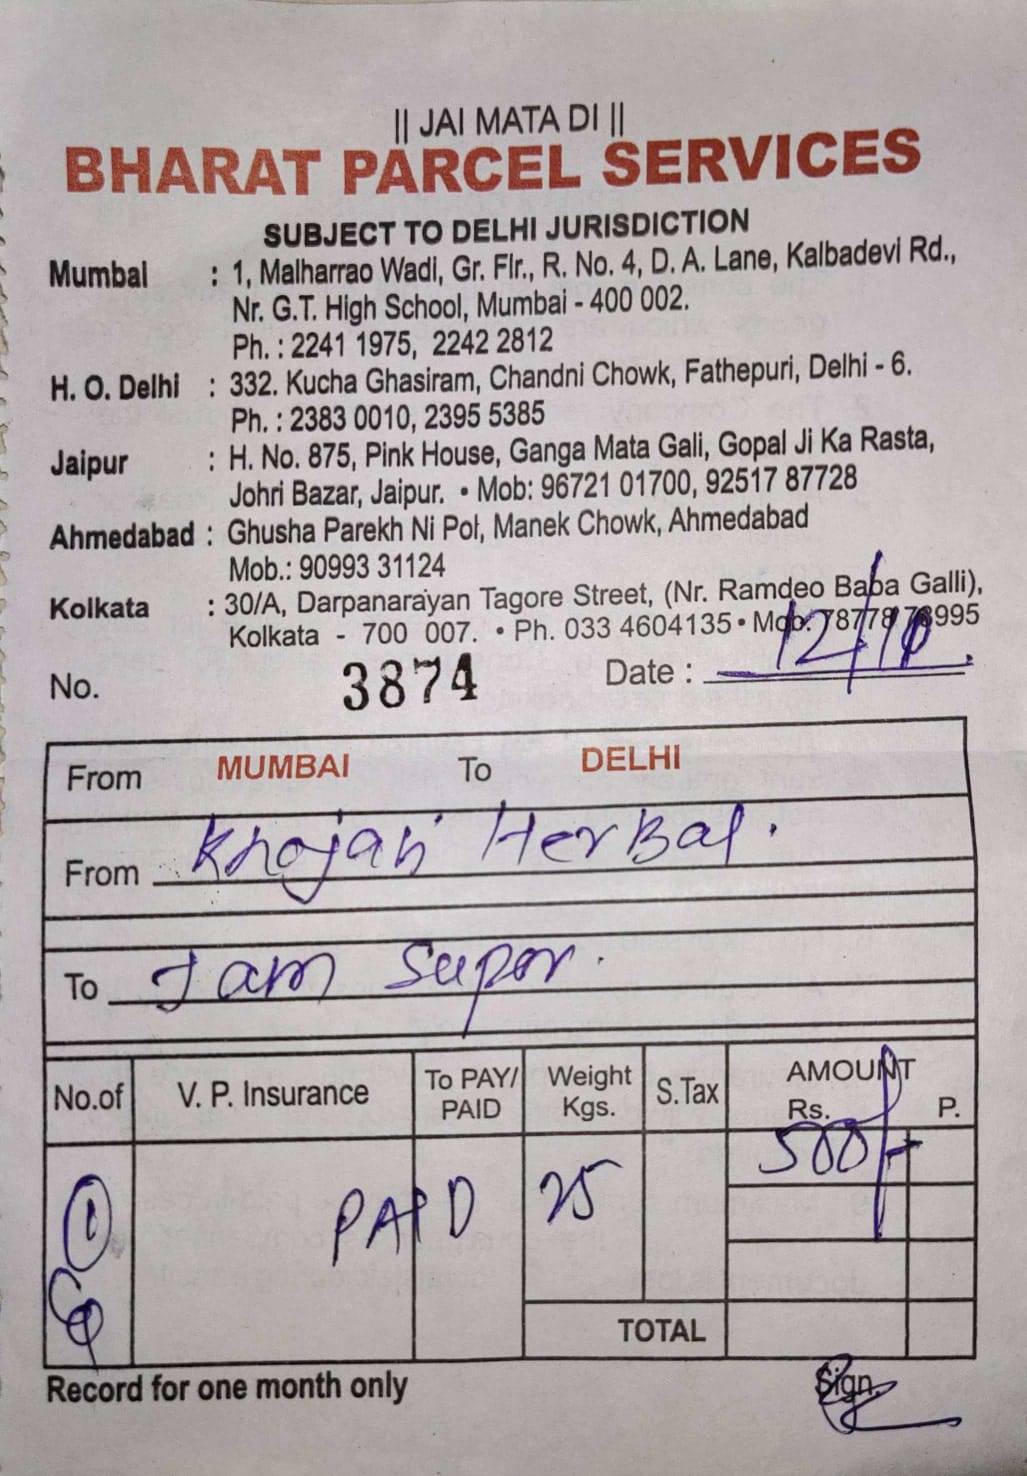 || JAI MATA DI ||
BHARAT PARCEL SERVICES
SUBJECT TO DELHI JURISDICTION
Mumbai : 1, Malharrao Wadi, Gr. Flr., R. No. 4, D. A. Lane, Kalbadevi Rd.,
Nr. G.T. High School, Mumbai - 400 002.
Ph. : 2241 1975, 2242 2812
H. O. Delhi : 332. Kucha Ghasiram, Chandni Chowk, Fathepuri, Delhi - 6.
Ph. : 2383 0010, 2395 5385
Jaipur : H. No. 875, Pink House, Ganga Mata Gali, Gopal Ji Ka Rasta,
Johri Bazar, Jaipur. • Mob: 96721 01700, 92517 87728
Ahmedabad : Ghusha Parekh Ni Pol, Manek Chowk, Ahmedabad
Mob.: 90993 31124
Kolkata : 30/A, Darpanarayan Tagore Street, (Nr. Ramdeo Baba Galli),
Kolkata - 700 007. • Ph. 033 4604135 • Mob:
No. 3874 Date : 12/10
From MUMBAI To DELHI
From Khojati Herbal.
To Jam Super.
No.of V. P. Insurance To PAY/ PAID Weight Kgs. S.Tax AMOUNT Rs. P.
1 PAID 25 500/-
TOTAL
Record for one month only Sign.